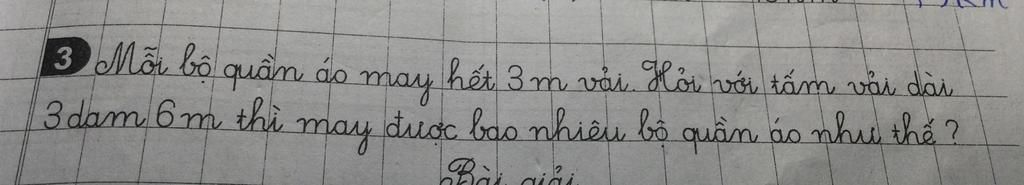 3 Mỗi bộ quần áo may hết 3 m vải. Hỏi với tấm vải dài
3 dam 6 m thì may được bao nhiêu bộ quần áo như thế?
Bài giải